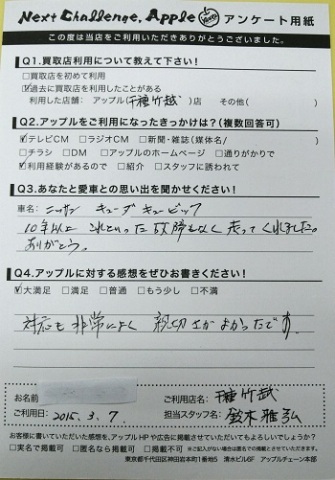 Next Challenge, Apple アンケート用紙
この度は当店をご利用いただきありがとうございました。
Q1.買取店利用について教えて下さい!
□買取店を初めて利用
☑過去に買取店を利用したことがある
利用した店舗: アップル(千種竹越)店 その他( )
Q2.アップルをご利用になったきっかけは?(複数回答可)
☑テレビCM □ラジオCM □新聞・雑誌(媒体名/ )
□チラシ □DM □アップルのホームページ □通りがかりで
☑利用経験があるので □紹介 □スタッフに誘われて
Q3.あなたと愛車との思い出を聞かせください!
車名: ニッサン キューブ キュービック
10年以上 これといった故障もなく 走ってくれました。
ありがとう。
Q4.アップルに対する感想をぜひお書きください!
☑大満足 □満足 □普通 □もう少し □不満
対応も 非常によく 親切さがよかったです。
お名前
ご利用店名: 千種竹越
ご利用日: 2015. 3. 7.
担当スタッフ名: 鈴木雅弘
お客様に書いていただいた感想を、アップルHPや広告に掲載させていただいてもよろしいでしょうか?
□実名で掲載可 □匿名なら掲載可 □掲載不可 ※ご記入がない場合は匿名での掲載とさせていただきます。
東京都千代田区神田岩本町1番地5 清水ビル6F アップルチェーン本部